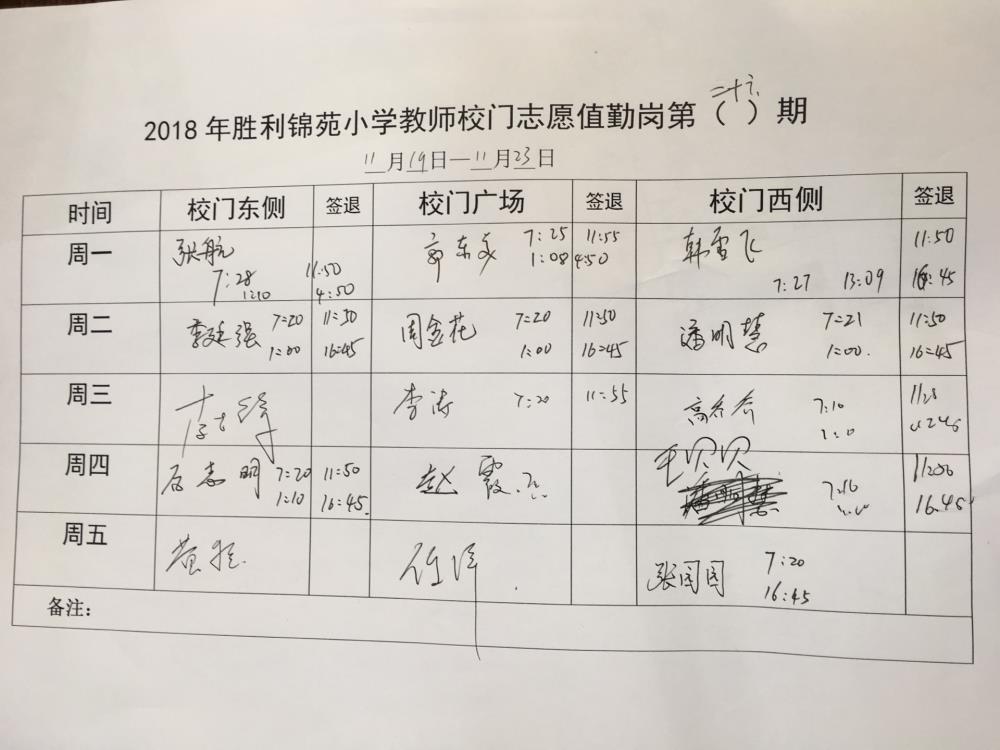 二十六
2018 年胜利锦苑小学教师校门志愿值勤岗第（ ）期
11月19日—11月23日
时间 校门东侧 签退 校门广场 签退 校门西侧 签退
周一 张航 7:25 11:55 韩雪飞 11:50
7:28 11:50 1:08 4:50 7:27 13:09 16:45
1:10 4:50
周二 李廷强 7:20 11:50 周金花 7:20 11:50 潘明慧 7:21 11:50
1:00 16:45 1:00 16:45 1:00. 16:45
周三 李涛 7:20 11:55 7:10
周四 7:20 11:50 赵霞 王贝贝
1:10 16:45. 16.45
周五 张园园 7:20
16:45
备注：